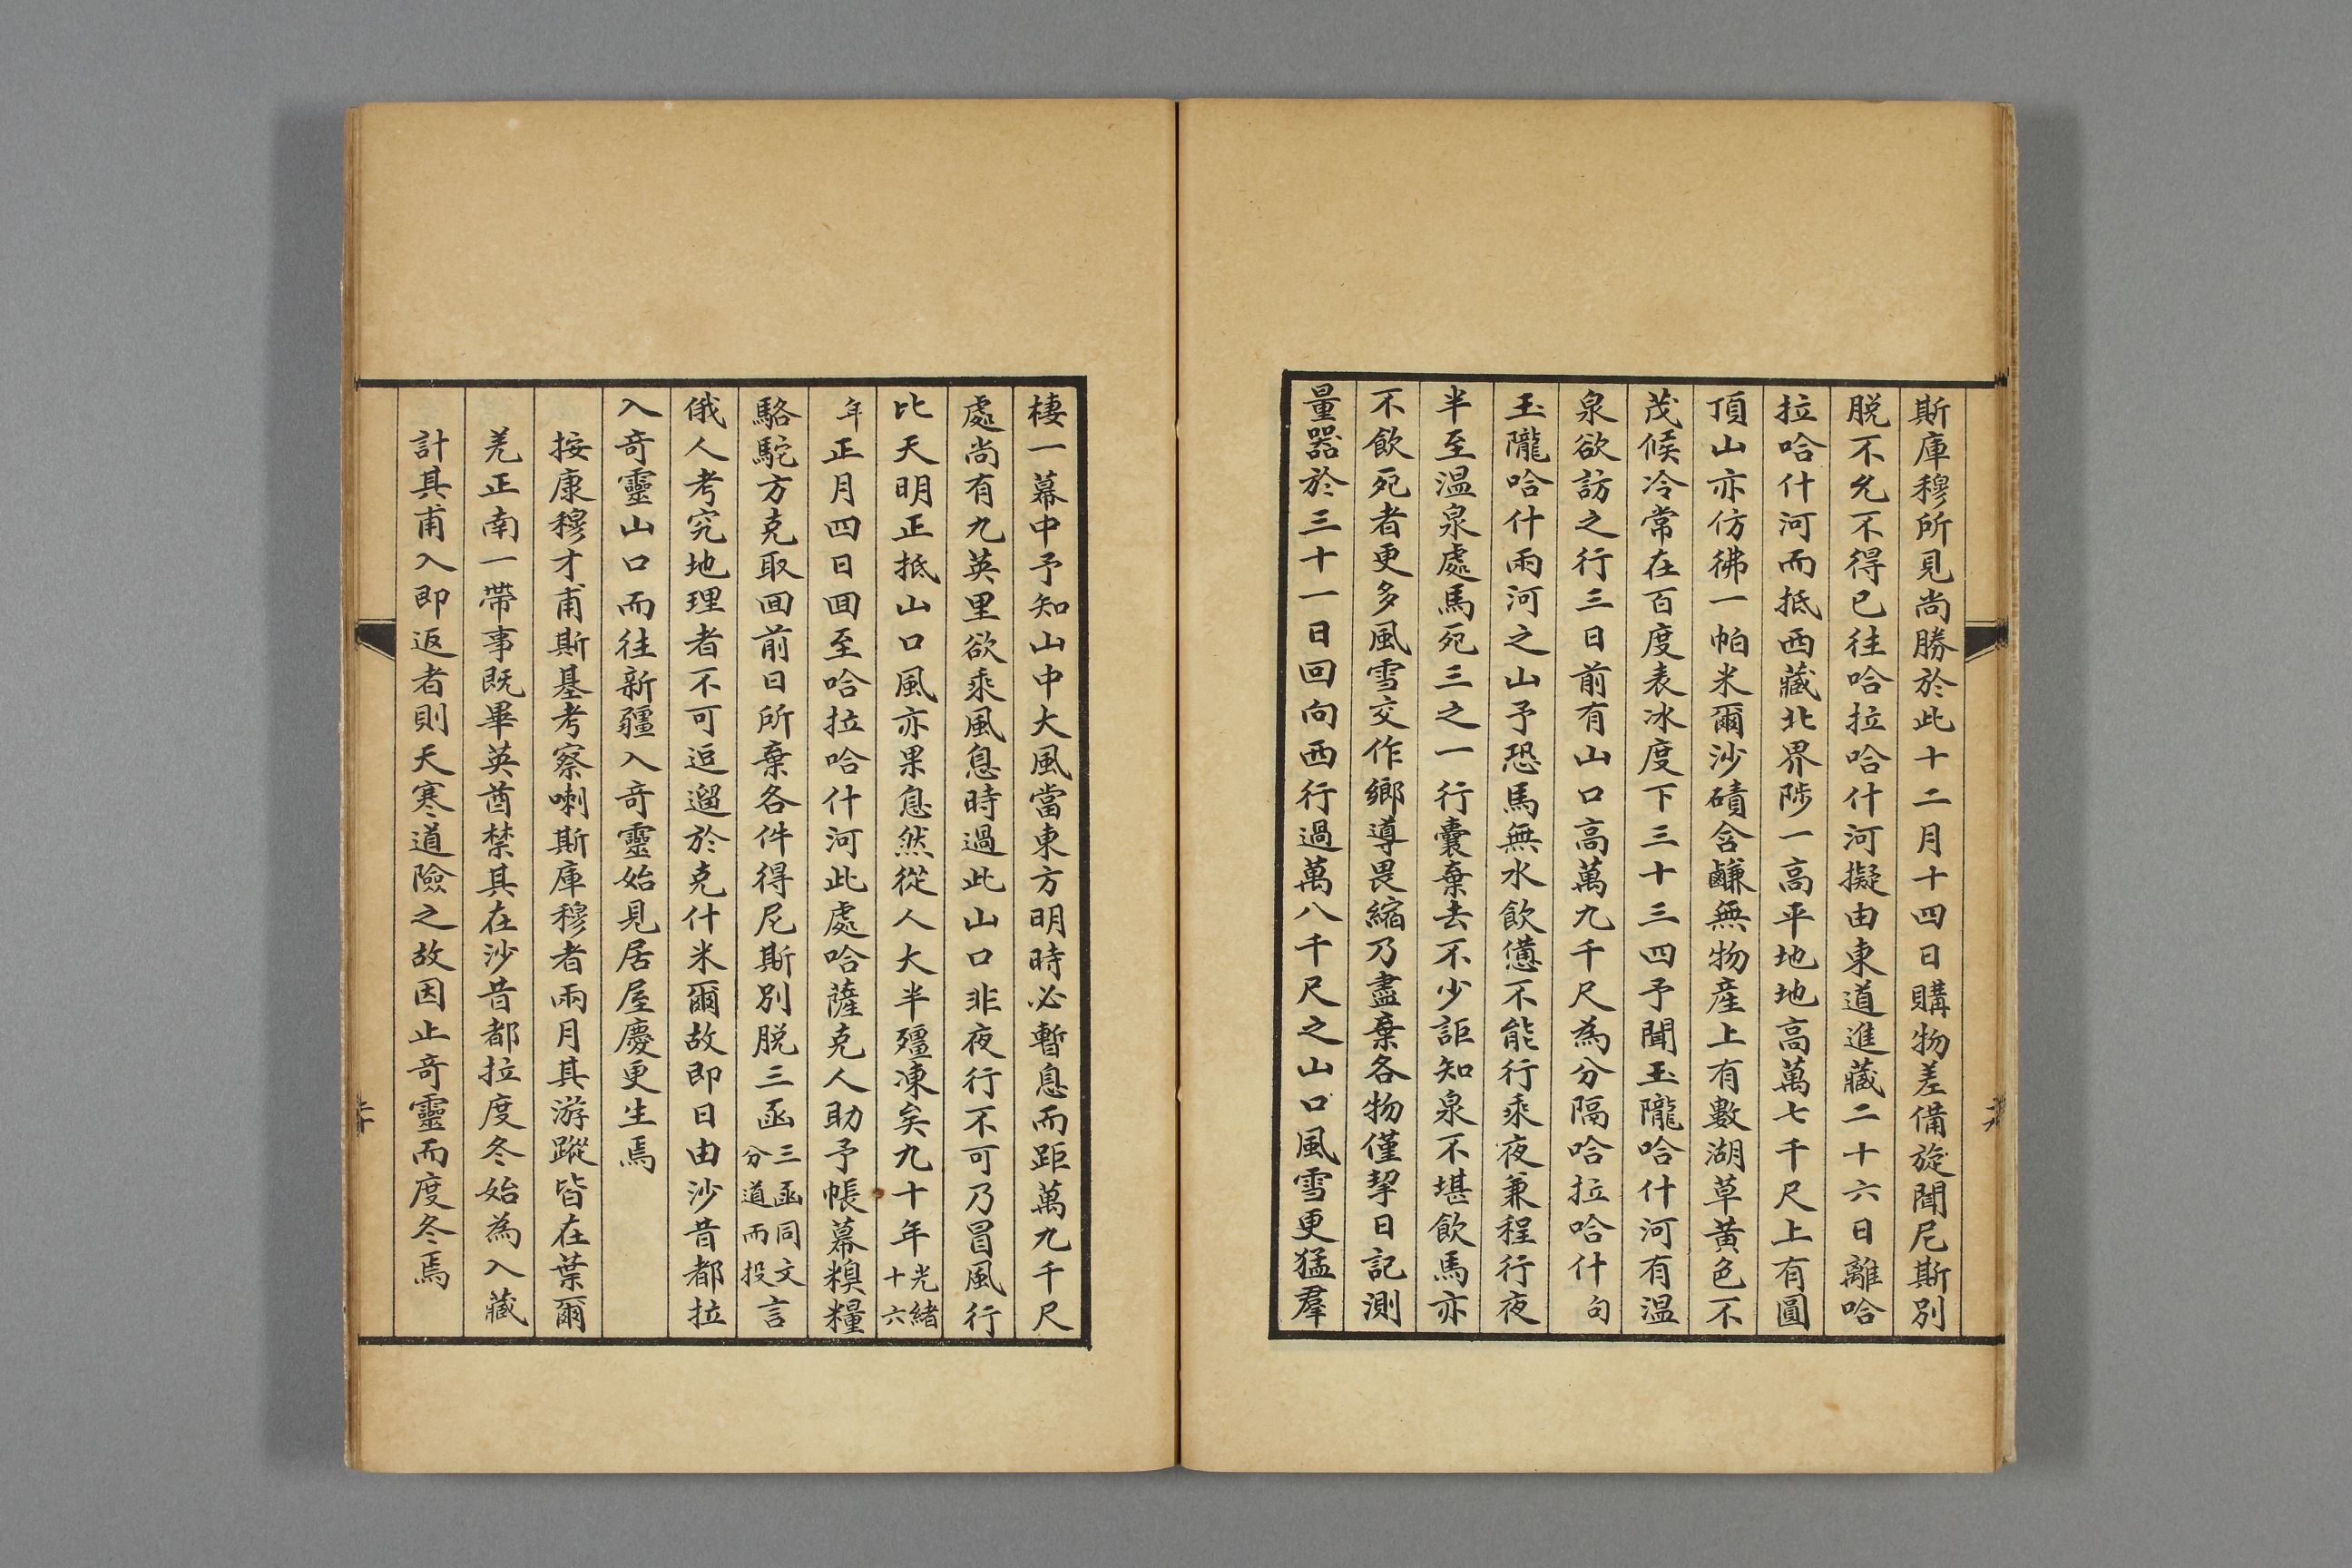 斯庫穆所見尚勝於此十二月十四日購物差備旋聞尼斯別
脱不允不得已往哈拉哈什河擬由東道進藏二十六日離哈
拉哈什河而抵西藏北界陟一高平地地高萬七千尺上有圓
頂山亦仿彿一帕米爾沙磧含鹻無物産上有數湖草黃色不
茂候冷常在百度表冰度下三十三四予聞玉隴哈什河有温
泉欲訪之行三日前有山口高萬九千尺為分隔哈拉哈什句
玉隴哈什兩河之山予恐馬無水飲憊不能行乘夜兼程行夜
半至温泉處馬死三之一行囊棄去不少詎知泉不堪飲馬亦
不飲死者更多風雪交作鄉導畏縮乃盡棄各物僅挈日記測
量器於三十一日回向西行過萬八千尺之山口風雪更猛羣
棲一幕中予知山中大風當東方明時必暫息而距萬九千尺
處尚有九英里欲乘風息時過此山口非夜行不可乃冒風行
比天明正抵山口風亦果息然從人大半殭凍矣九十年光緒十六
年正月四日回至哈拉哈什河此處哈薩克人助予帳幕糗糧
駱駝方克取回前日所棄各件得尼斯別脱三函三函同文分道而投言
俄人考究地理者不可逗遛於克什米爾故即日由沙昔都拉
入奇靈山口而往新疆入奇靈始見居屋慶更生焉
按康穆才甫斯基考察喇斯庫穆者兩月其游蹤皆在葉爾
羌正南一帶事既畢英酋禁其在沙昔都拉度冬始為入藏
計其甫入即返者則天寒道險之故因止奇靈而度冬焉